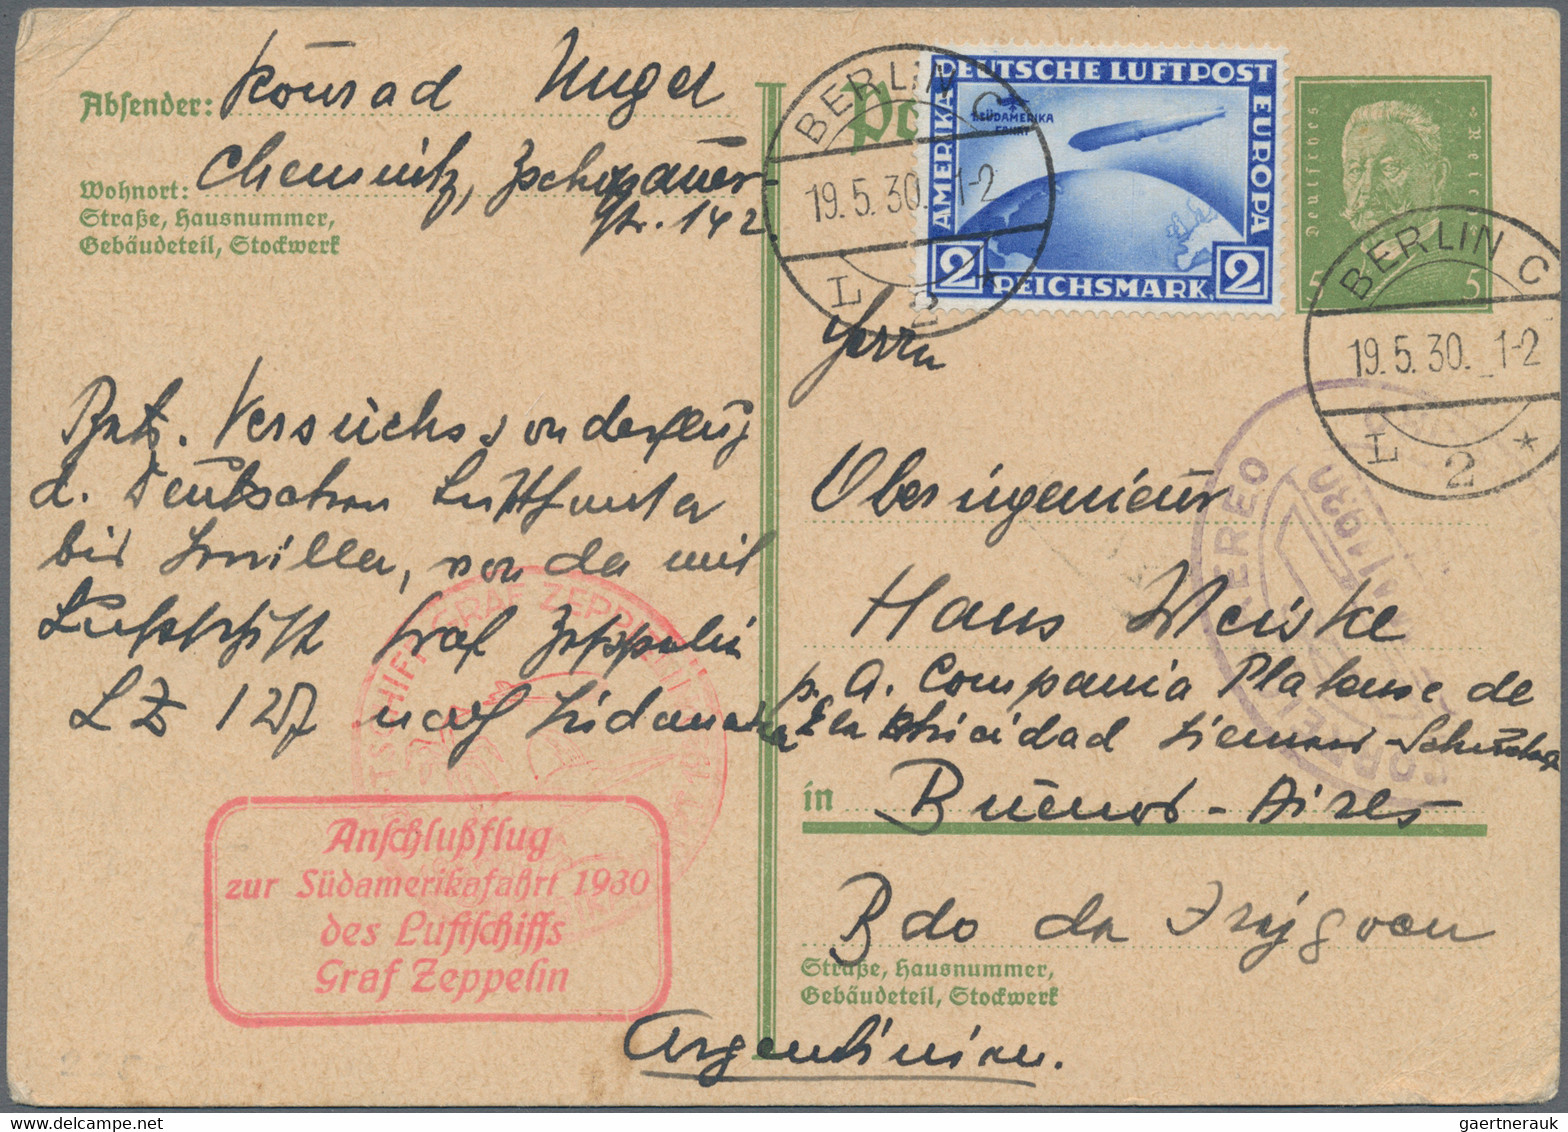 Absender: Konrad Nugel
Chemnitz, Zschopauer-
str. 142
Wohnort:
Straße, Hausnummer,
Gebäudeteil, Stockwerk
BERLIN C
19.5.30. 1-2
L 2 *
DEUTSCHE LUFTPOST
SÜDAMERIKA
FAHRT
AMERIKA
EUROPA
2 REICHSMARK 2
Deutsches Reich
5 5
BERLIN C
19.5.30. 1-2
L 2 *
Herrn
Versuchssonderflug
d. Deutschen Lufthansa
bis Sevilla, von da mit
Luftschiff Graf Zeppelin
LZ 127 nach Südamerika
Oberingenieur
Hans Weiske
p. A. Compania Platense de
Electricidad Siemens-Schuckert
in Buenos-Aires
Bdo de Irigoyen
Straße, Hausnummer,
Gebäudeteil, Stockwerk
Argentinien.
GRAF ZEPPELIN
Anschlußflug
zur Südamerikafahrt 1930
des Luftschiffs
Graf Zeppelin
AEREO
1930
gaertnerauk
delcampe.net